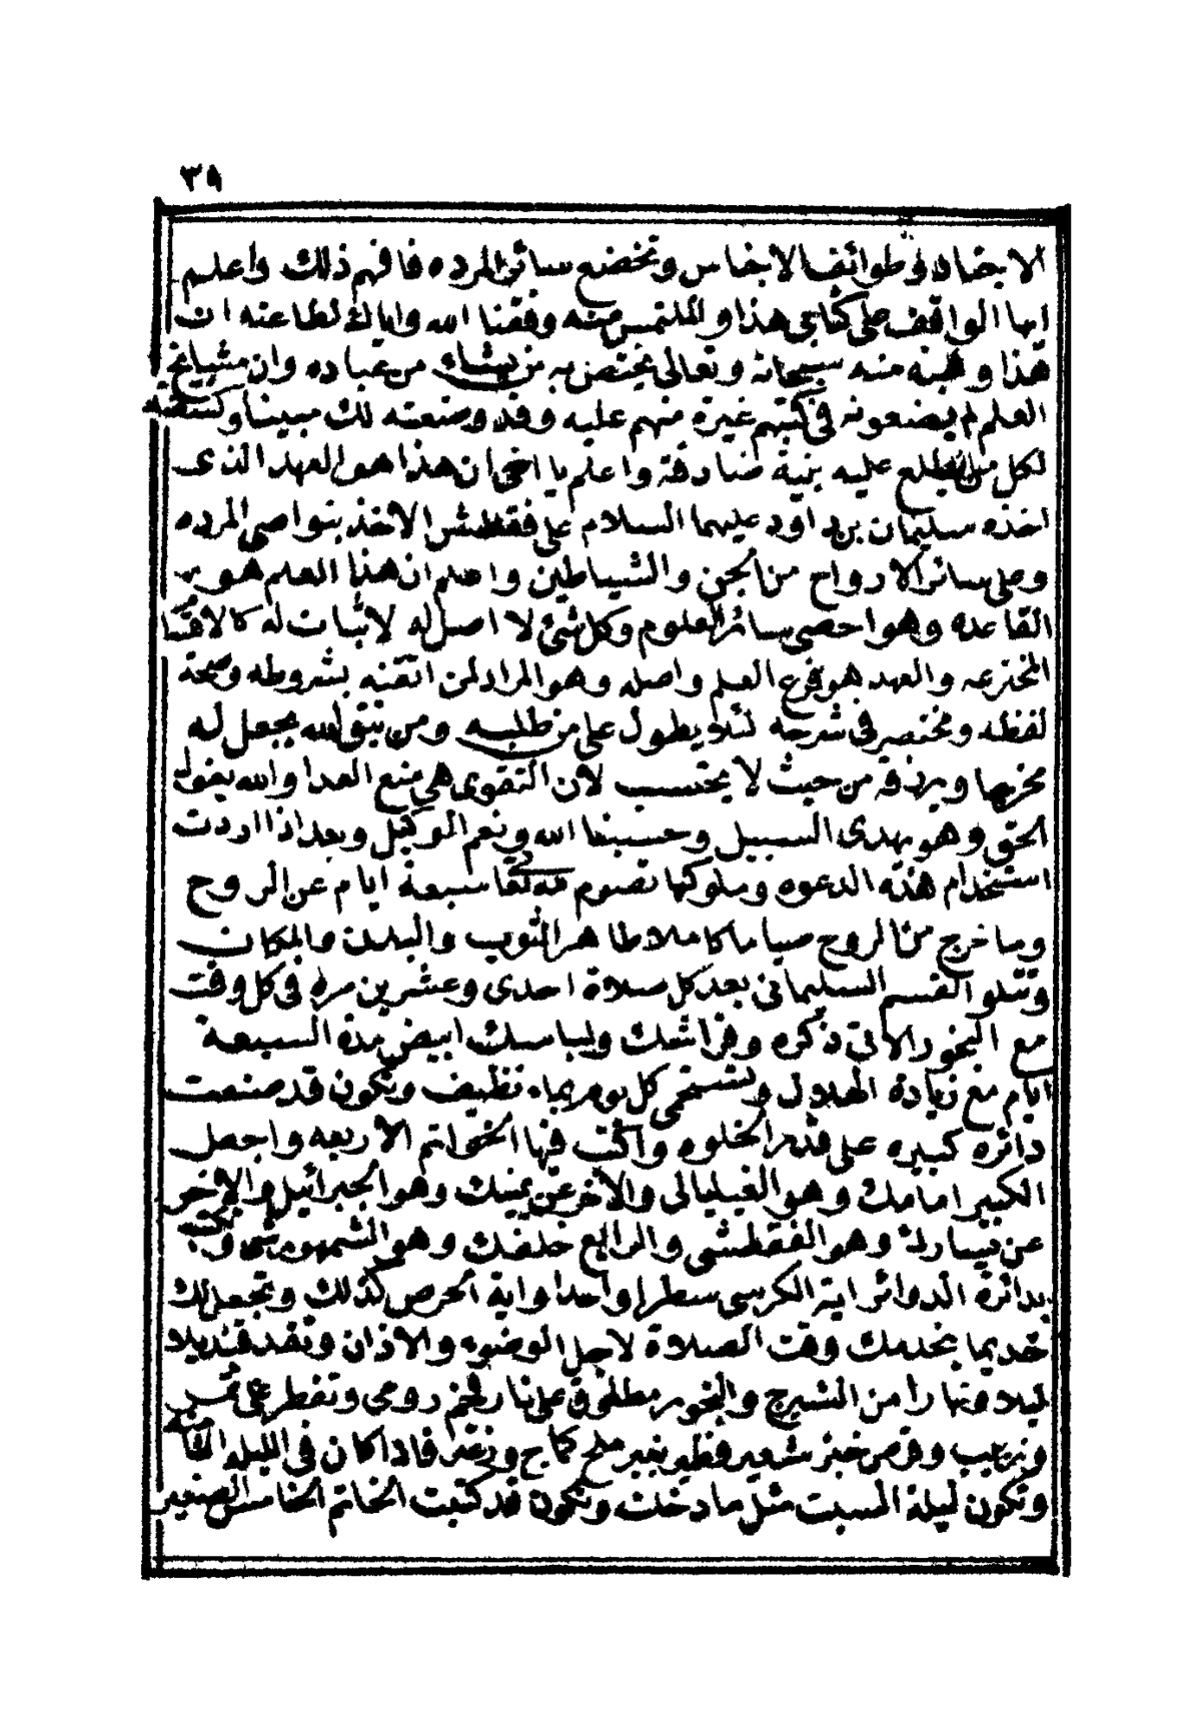 ٣٩
الاجناد وطوائف الاجناس وتخضع سائر المرده فافهم ذلك واعلم
ايها الواقف على كتابى هذا والملتمس منه وفقنا الله واياك لطاعته ان
هذا وهبة منه سبحانه وتعالى يختص به من يشاء من عباده وان مشايخ
العلم لم يضعونه فى كتبهم غيرة منهم عليه وقد وضعته لك مبينا وكشفته
لكل من يطلع عليه بنية صادقة واعلم يا اخى ان هذا هو العهد الذى
اخذه سليمان بن داود عليهما السلام على فقطش الاخذ بنواصى المرده
وعلى سائر الارواح من الجن والشياطين واعلم ان هذا العلم هو
القاعده وهو احصى سائر العلوم وكل شئ لا اصل له لا ثبات له كالاقسام
المخترعه والعهد هو فرع العلم واصله وهو المراد لمن اتقنه بشروطه وصحة
لفظه ومختصر فى شرحه لئلا يطول على من طلبه ومن يتق الله يجعل له
مخرجا ويرزقه من حيث لا يحتسب لان التقوى هى منبع العدا والله يقول
الحق وهو يهدى السبيل وحسبنا الله ونعم الوكيل وبعد اذا اردت
استخدام هذه الدعوه وملوكها تصوم لله تعالى سبعة ايام عن الروح
وما خرج من الروح صياما كاملا طاهر الثوب والبدن والمكان
وتتلو القسم السليمانى بعد كل صلاة احدى وعشرين مرة فى كل وقت
مع البخور الاتى ذكره وفراشك ولباسك ابيض مدة السبعة
ايام مع زيادة الهلال وتستحمى كل يوم بماء نظيف وتكون قد صنعت
دائره كبيره على قدر الخلوه واكتب فيها الخواتم الاربعه واجعل
الكبير امامك وهو الغيليالى والاخر عن يمينك وهو الجبرائيل والاخر
عن يسارك وهو الفقطشى والرابع خلفك وهو الشمهورشى وتكتب
بدائرة الدوائر اية الكرسى سطرا واحدا واية الحرص كذلك وتجعل لك
خديما يخدمك وقت الصلاة لاجل الوضوء والاذان وتقد قنديلا
ليلا ونهارا من الشيرج والبخور مطلوق على نار فحم رومى وتفطر على تمر
وزبيب وقرص خبز شعير فطير بغير ملح كماج وزعتر فاذا كان فى الليله الثامنه
وتكون ليلة السبت مثل ما دخلت وتكون قد كتبت الخاتم الخامس الصغير